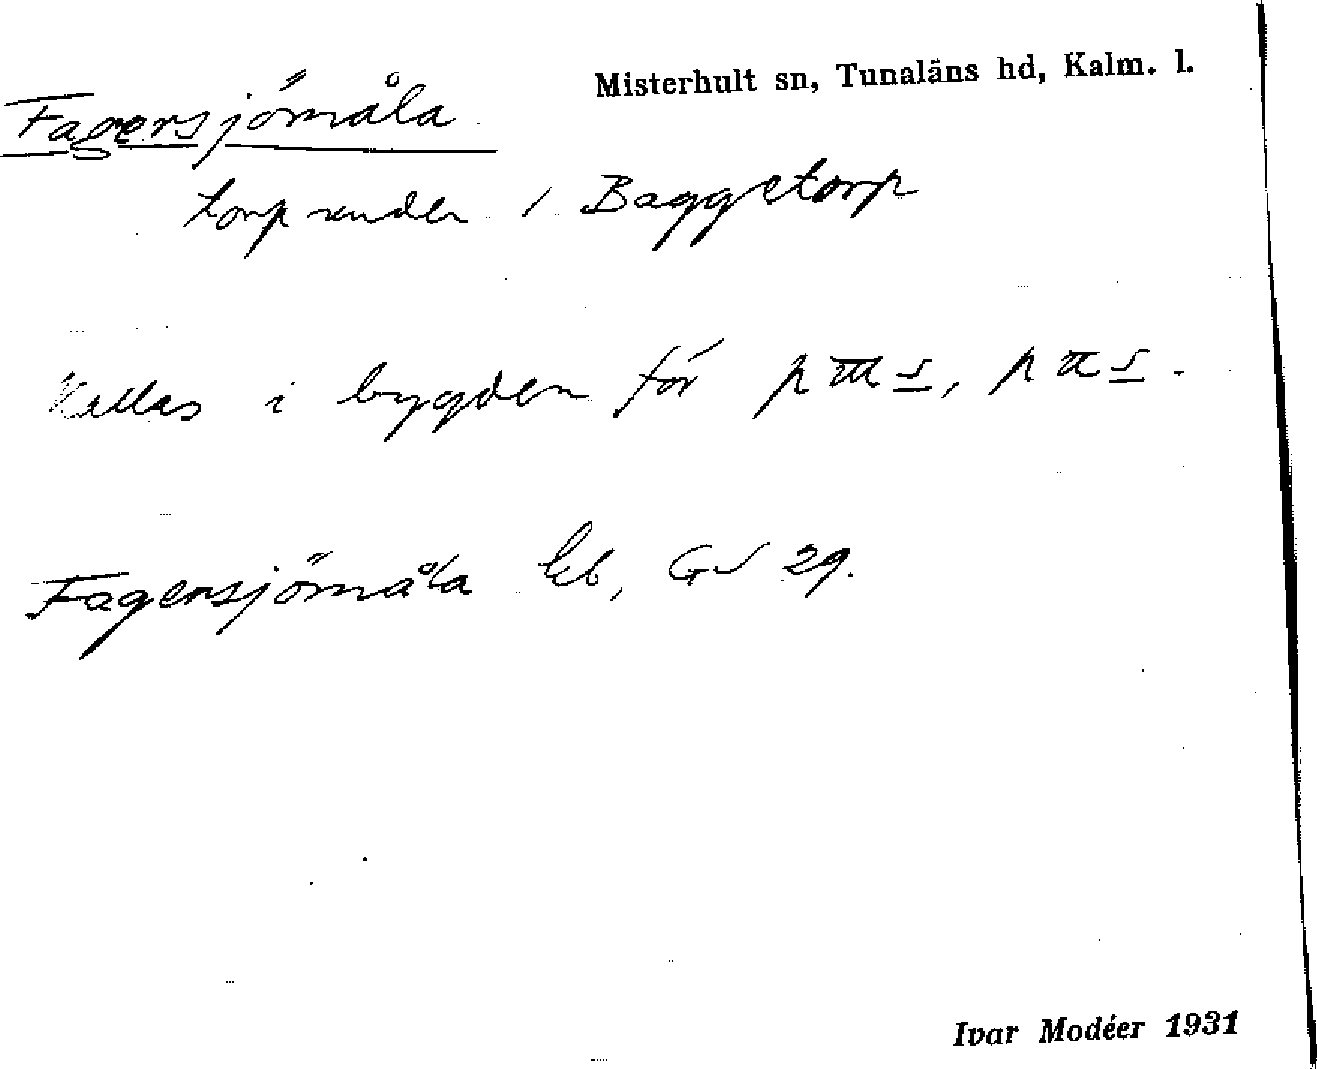 Misterhult sn, Tunaläns hd, Kalm. l.
Fagersjömåla
torp under 1 Baggetorp
Kallas i bygden för
Fagersjömåla Eb, GV 29.
Ivar Modéer 1931